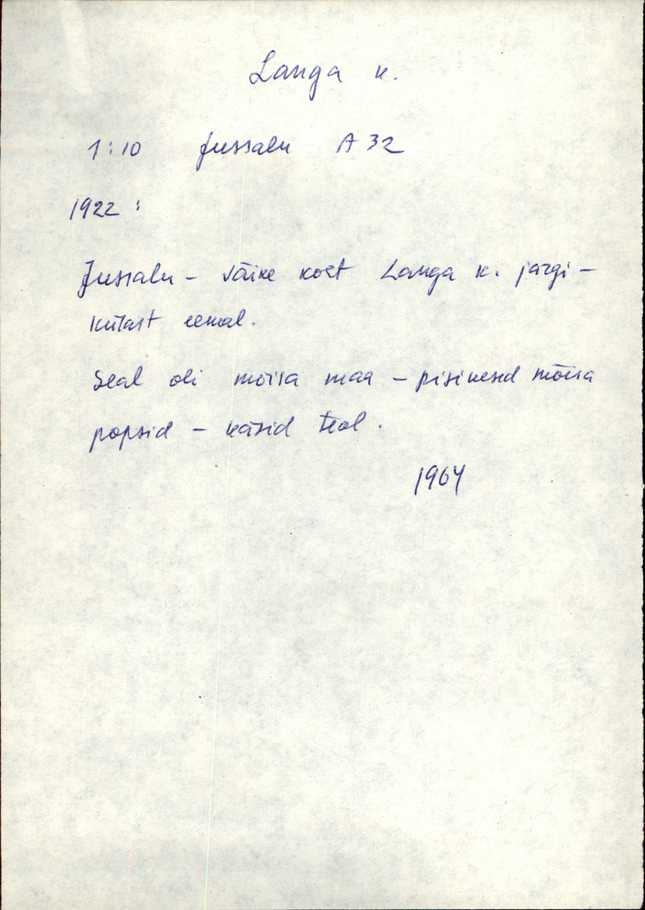 Langa k.
1:10 Jussalu A 32
1922:
Jussalu - väike koht Langa k. järgi -
külast eemal.
Seal oli mõisa maa - pisikesed mõisa
popsid - käisid teol.
1964